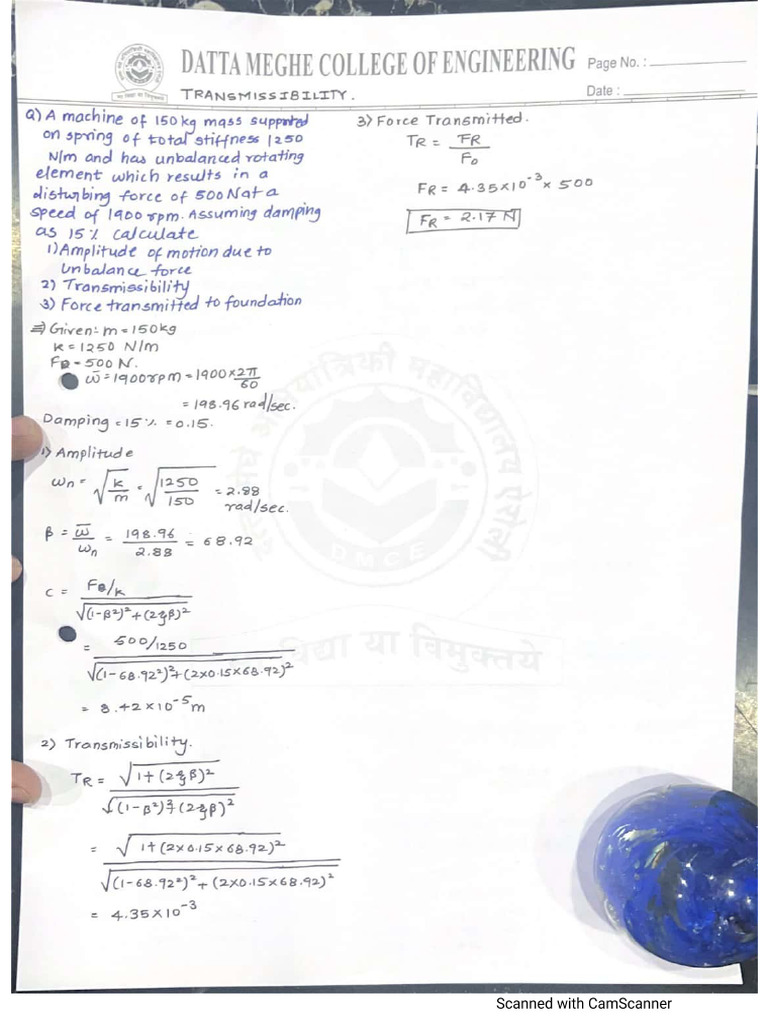 DATTA MEGHE COLLEGE OF ENGINEERING
Page No. :
TRANSMISSIBILITY.
Date :
Q) A machine of 150 kg mass supported
on spring of total stiffness 1250
N/m and has unbalanced rotating
element which results in a
disturbing force of 500N at a
speed of 1900 rpm. Assuming damping
as 15% calculate
1) Amplitude of motion due to
Unbalance force
2) Transmissibility
3) Force transmitted to foundation
⇒ Given:- m = 150kg
K = 1250 N/m
F₀ = 500 N.
ω̅ = 1900 rpm = 1900 × 2π/60
= 198.96 rad/sec.
Damping = 15% = 0.15.
1) Amplitude
ωn = √(K/m) = √(1250/150) = 2.88
rad/sec.
β = ω̅/ωn = 198.96/2.88 = 68.92
C = F₀/K / √((1-β²)²+(2ξβ)²)
= 500/1250 / √((1-68.92²)²+(2×0.15×68.92)²)
= 8.42×10⁻⁵m
2) Transmissibility.
TR = √(1+(2ξβ)²) / √((1-β²)²+(2ξβ)²)
= √(1+(2×0.15×68.92)²) / √((1-68.92²)²+(2×0.15×68.92)²)
= 4.35×10⁻³
3) Force Transmitted.
TR = FR/F₀
FR = 4.35×10⁻³ × 500
FR = 2.17 N
DMCE
विद्या या विमुक्तये
Scanned with CamScanner